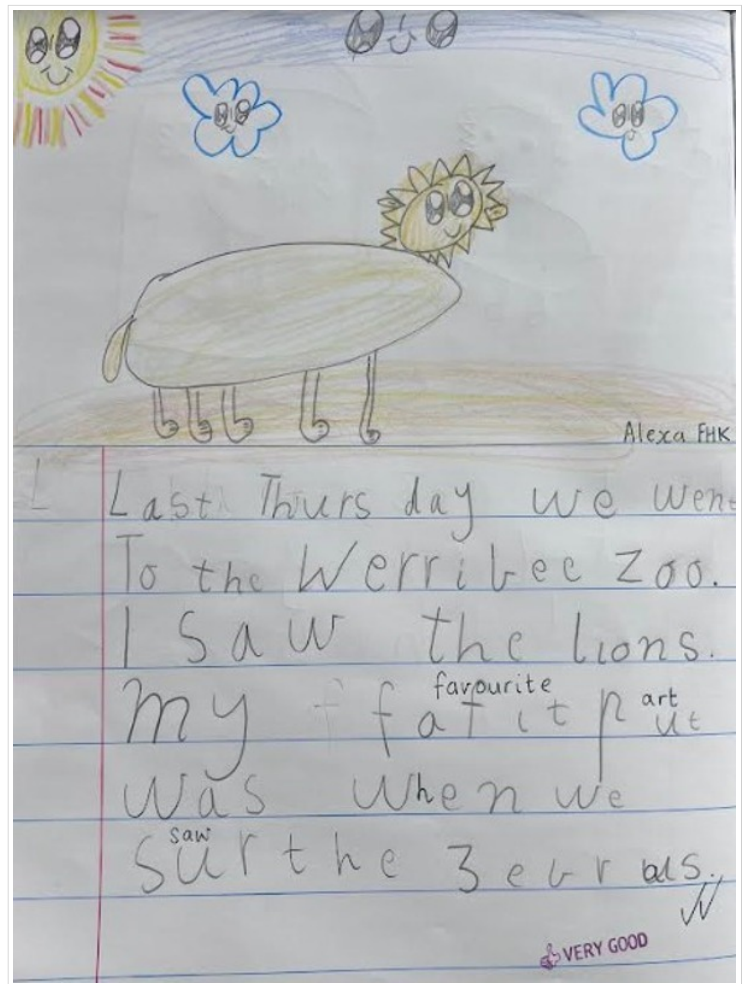 Alexa FHK
Last Thursday we went
To the Werribee Zoo.
I saw the lions.
favourite art
my f fatit put
was when we
saw
sur the zebras.
VERY GOOD